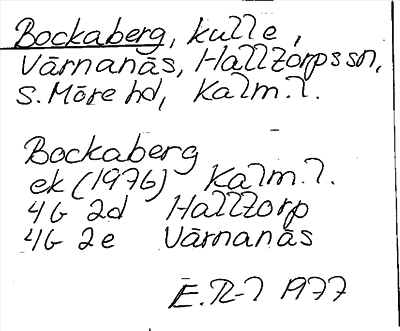 Bockaberg, kulle,
Värnanäs, Halltorps sn,
S. Möre hd, Kalm. l.
Bockaberg
ek (1976) Kalm. l.
4G 2d Halltorp
4G 2e Värnanäs
E. R-l 1977